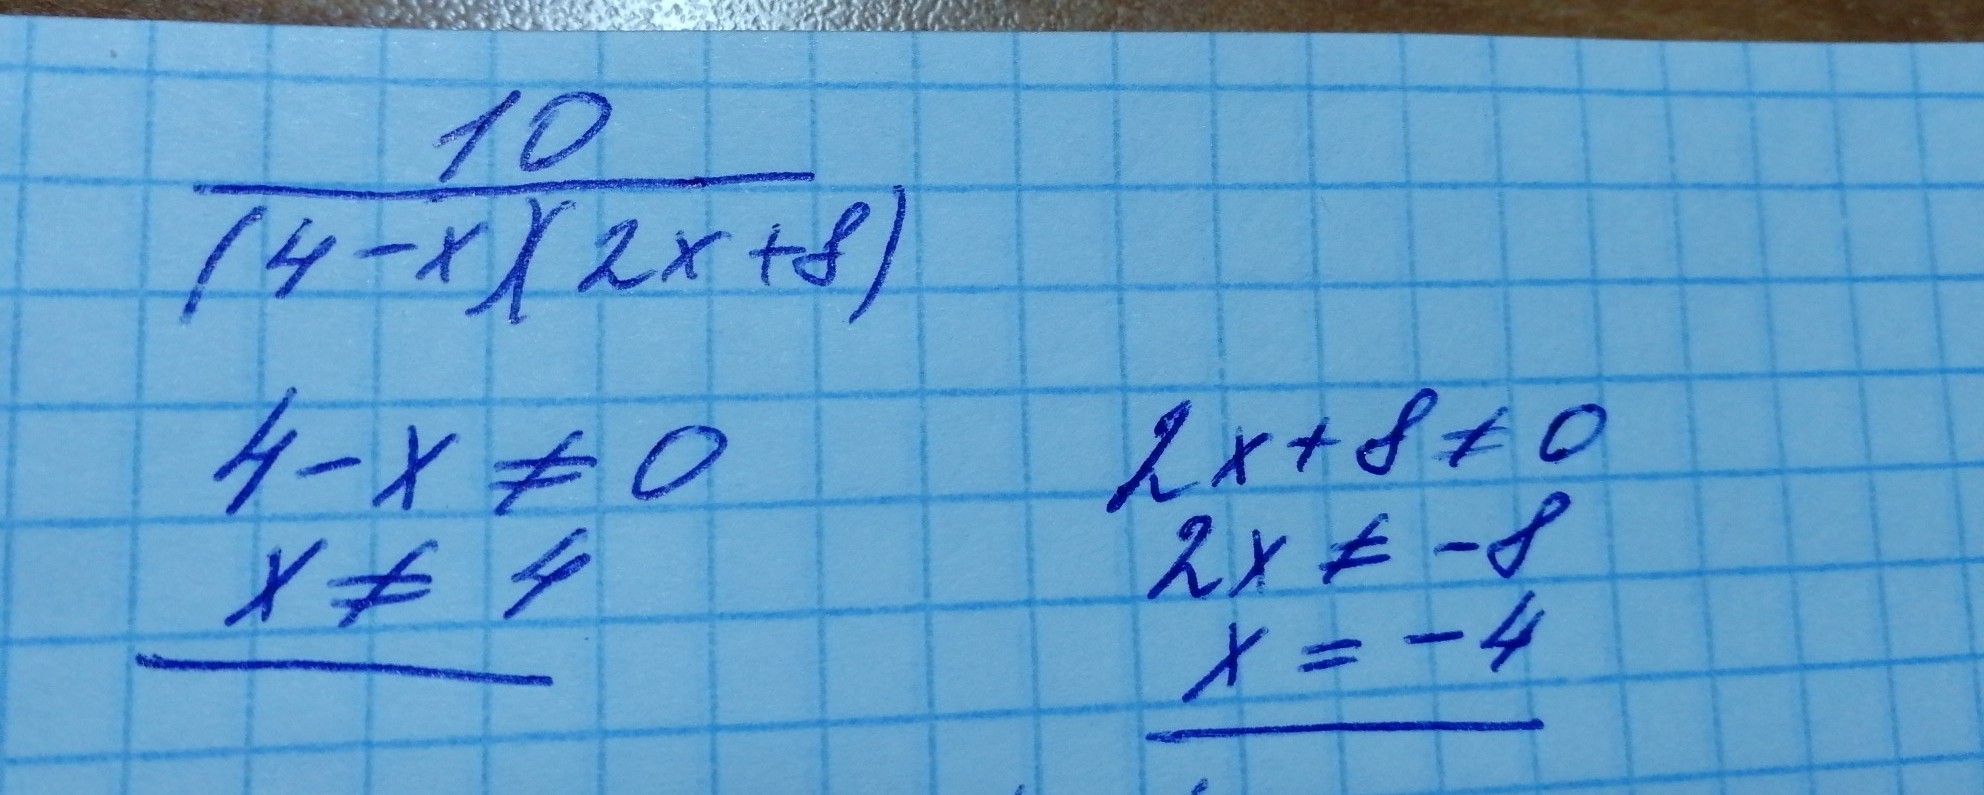 10
(4-x)(2x+8)
4-x ≠ 0
x ≠ 4
2x+8 ≠ 0
2x ≠ -8
x = -4